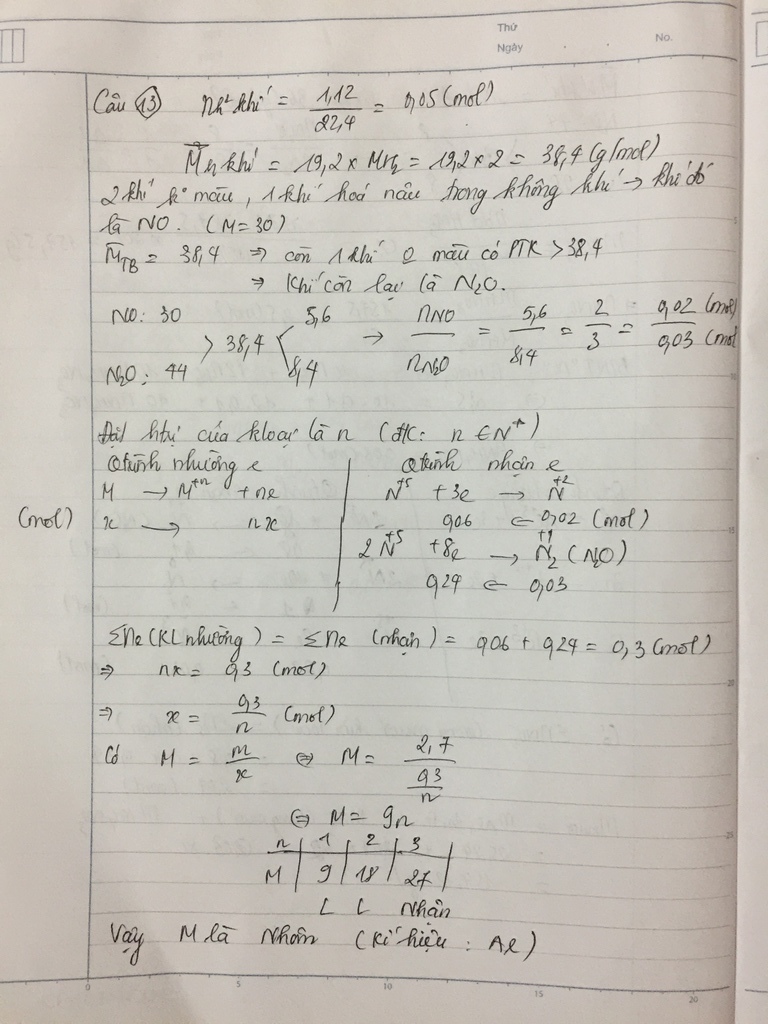 Thứ
No.
Ngày
Câu 13 nh² khí = 1,12 / 22,4 = 0,05 (mol)
M̅h khí = 19,2 x MH2 = 19,2 x 2 = 38,4 (g/mol)
2 khí k° màu, 1 khí hoá nâu trong không khí → khí đó
là NO. (M=30)
M̅TB = 38,4 ⇒ còn 1 khí 0 màu có PTK > 38,4
⇒ Khí còn lại là N2O.
NO: 30 5,6
> 38,4 < → nNO / nN2O = 5,6 / 8,4 = 2 / 3 = 0,02 (mol) / 0,03 (mol
N2O: 44 8,4
Đặt htrị của kloại là n (đk: n ∈ N*)
Qtrình nhường e Qtrình nhận e
M → M+n + ne N+5 + 3e → N+2
(mol) x → nx 0,06 ← 0,02 (mol)
2N+5 + 8e → N+12 (N2O)
0,24 ← 0,03
Σne (KL nhường) = Σne (nhận) = 0,06 + 0,24 = 0,3 (mol)
⇒ nx = 0,3 (mol)
⇒ x = 0,3 / n (mol)
Có M = m / x ⇔ M = 2,7 / (0,3 / n)
⇔ M = 9n
n | 1 | 2 | 3
M | 9 | 18 | 27
L L Nhận
Vậy M là Nhôm (Kí hiệu : Al)
0 5 10 15 20